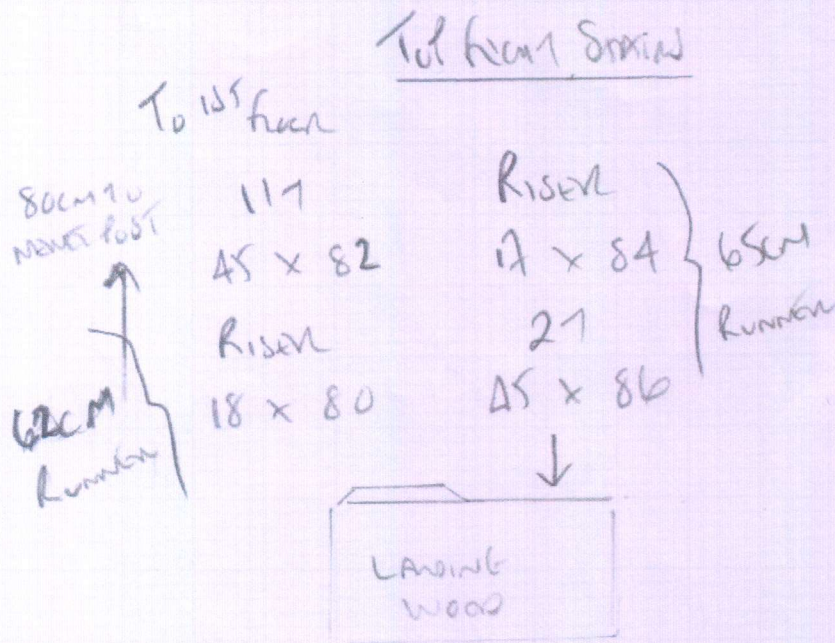 Top flight Stairs
To 1st floor
80cm to
Newel Post
111
45 x 82
Riser
18 x 80
62cm
Runner
Riser
17 x 84
21
45 x 86
65cm
Runner
Landing
Wood